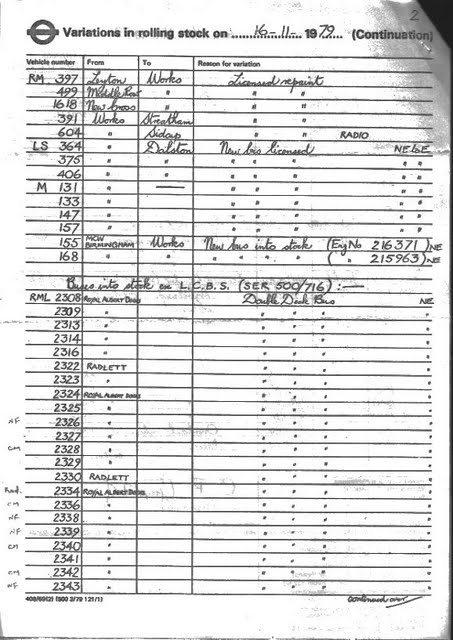 2
Variations in rolling stock on 16-11-1979 (Continuation)
Vehicle number From To Reason for variation
RM 397 Leyton Works Licensed repaint
499 Middle Row " " "
1618 New Cross " " "
391 Works Streatham " "
604 " Sidcup " " RADIO
LS 364 " Dalston New bus licensed NE LE
375 " " " " " " "
406 " " " " " " "
M 131 " — " " "
133 " " " "
147 " " " "
157 " " " "
155 MCW BIRMINGHAM Works New bus into stock (Eng No 216371) NE
168 " " " " " " ( " 215963) NE
Buses into stock ex L.C.B.S. (SER 500/716) :—
RML 2308 ROYAL ALBERT DOCKS Double Deck Bus NE
2309 " " " " "
2313 " " " " "
2314 " " " " "
2316 " " " " "
2322 RADLETT " " " "
2323 " " " " "
2324 ROYAL ALBERT DOCKS " " " "
2325 " " " " "
NF 2326 " " " " "
2327 " " " " "
CM 2328 " " " " "
2329 " " " " "
2330 RADLETT " " " "
Rad. 2334 ROYAL ALBERT DOCKS " " " "
CM 2336 " " " " "
NF 2338 " " " " "
NF 2339 " " " " "
CM 2340 " " " " "
2341 " " " " "
CM 2342 " " " " "
NF 2343 " " " " "
408/69(2) (500 3/79 121/1) Continued over